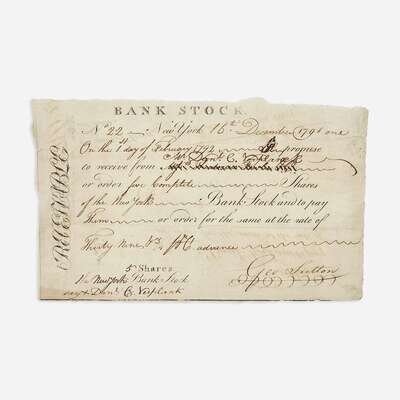 BANK STOCK
No 22 New York 16th December 1791 one
On the 1st day of February 1792 I propose
to receive from Mr Danl C. Verplanck
or order five Complete Shares
of the New York Bank Stock and to pay
them or order for the same at the rate of
Thirty Nine P Ct advance
5 Shares
New York Bank Stock
Danl C. Verplank
Geo Sutton
RECEIVABLE